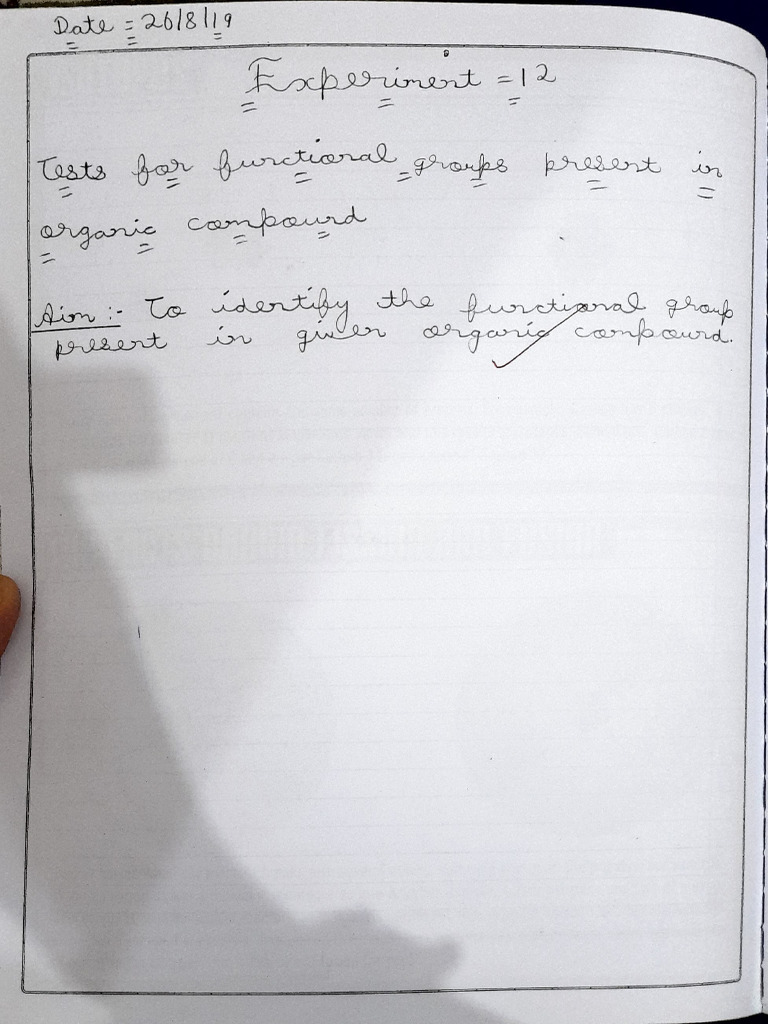 Date = 26/8/19
Experiment = 12
Tests for functional groups present in
organic compound
Aim :- To identify the functional group
present in given organic compound.